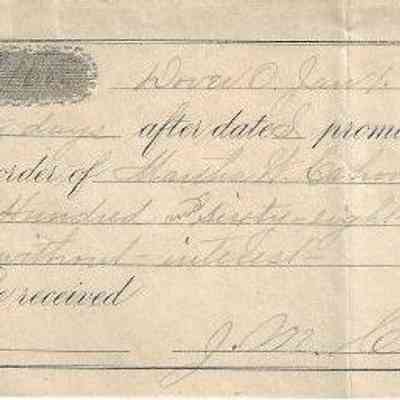 Dover O. Jan 1.
days after date I promi
order of Martha W. Calhou
Hundred & sixty-eight
without interest
e received
J. M.